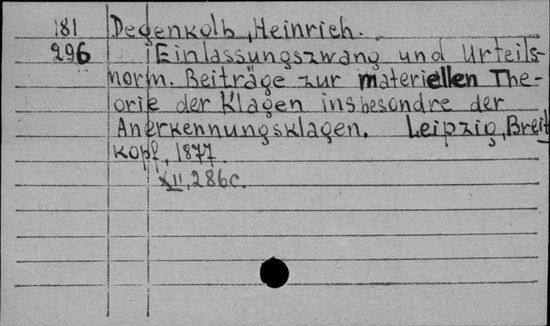 181 Degenkolb, Heinrich.
296 Einlassungszwang und Urteils-
norm. Beiträge zur materiellen The-
orie der Klagen insbesondre der
Anerkennungsklagen. Leipzig, Breit
kopf, 1877.
XII, 286 c.